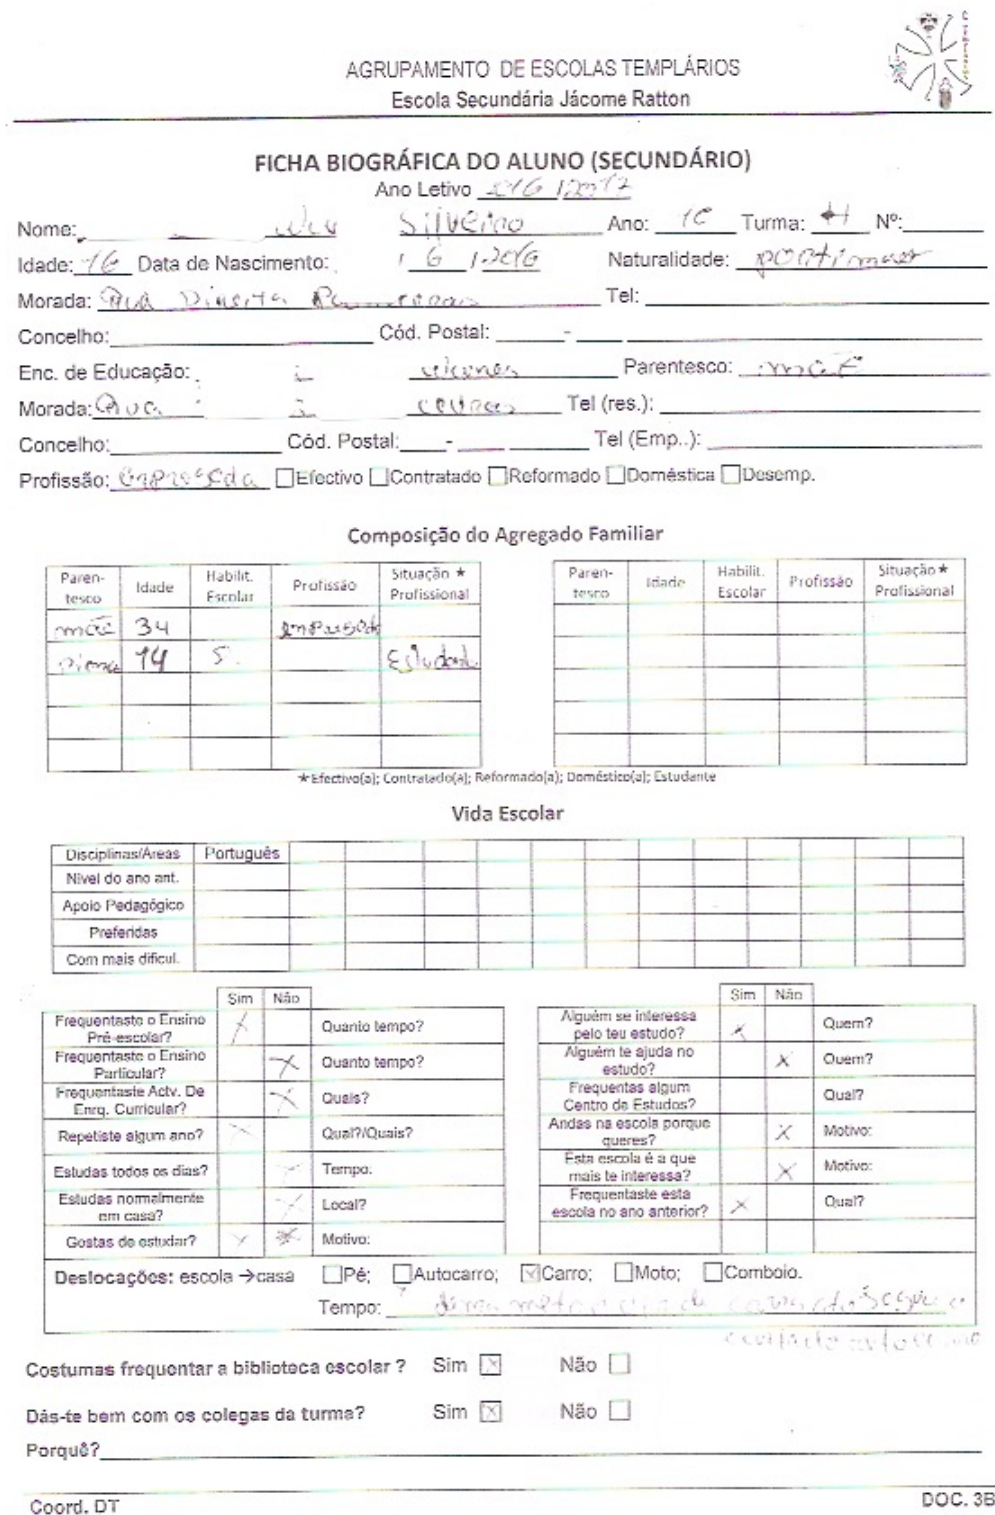 AGRUPAMENTO DE ESCOLAS TEMPLÁRIOS
Escola Secundária Jácome Ratton
FICHA BIOGRÁFICA DO ALUNO (SECUNDÁRIO)
Ano Letivo 2016/2017
Nome: Silveiro Ano: 10 Turma: H Nº:
Idade: 16 Data de Nascimento: 6 / 2016 Naturalidade:
Morada: Rua Direita Tel:
Concelho: Cód. Postal: -
Enc. de Educação: Parentesco: mãe
Morada: Rua Tel (res.):
Concelho: Cód. Postal: - Tel (Emp..):
Profissão: Efectivo Contratado Reformado Doméstica Desemp.
Composição do Agregado Familiar
Paren-tesco Idade Habilit. Escolar Profissão Situação ★ Profissional Paren-tesco Idade Habilit. Escolar Profissão Situação ★ Profissional
mãe 34
14 5. Estudante
★Efectivo(a); Contratado(a); Reformado(a); Doméstico(a); Estudante
Vida Escolar
Disciplinas/Áreas Português
Nivel do ano ant.
Apoio Pedagógico
Preferidas
Com mais dificul.
Sim Não
Frequentaste o Ensino Pré-escolar? X Quanto tempo?
Frequentaste o Ensino Particular? X Quanto tempo?
Frequentaste Actv. De Enrq. Curricular? X Quais?
Repetiste algum ano? X Qual?/Quais?
Estudas todos os dias? X Tempo:
Estudas normalmente em casa? X Local?
Gostas de estudar? X Motivo:
Sim Não
Alguém se interessa pelo teu estudo? X Quem?
Alguém te ajuda no estudo? X Quem?
Frequentas algum Centro de Estudos? Qual?
Andas na escola porque queres? X Motivo:
Esta escola é a que mais te interessa? X Motivo:
Frequentaste esta escola no ano anterior? X Qual?
Deslocações: escola →casa Pé; Autocarro; Carro; Moto; Comboio.
Tempo:
Costumas frequentar a biblioteca escolar ? Sim X Não
Dás-te bem com os colegas da turma? Sim X Não
Porquê?
Coord. DT DOC. 3B